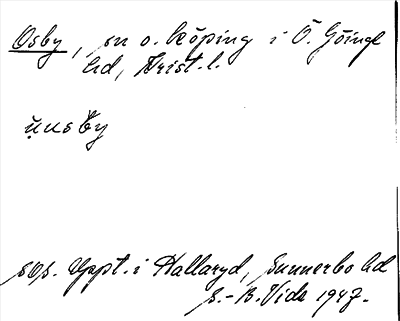 Osby, sn o. köping i Ö. Göinge
hd, Krist. l.
u̯usby
sps. Uppt. i Hallaryd, Sunnerbo hd
S.-B. Vide 1947.